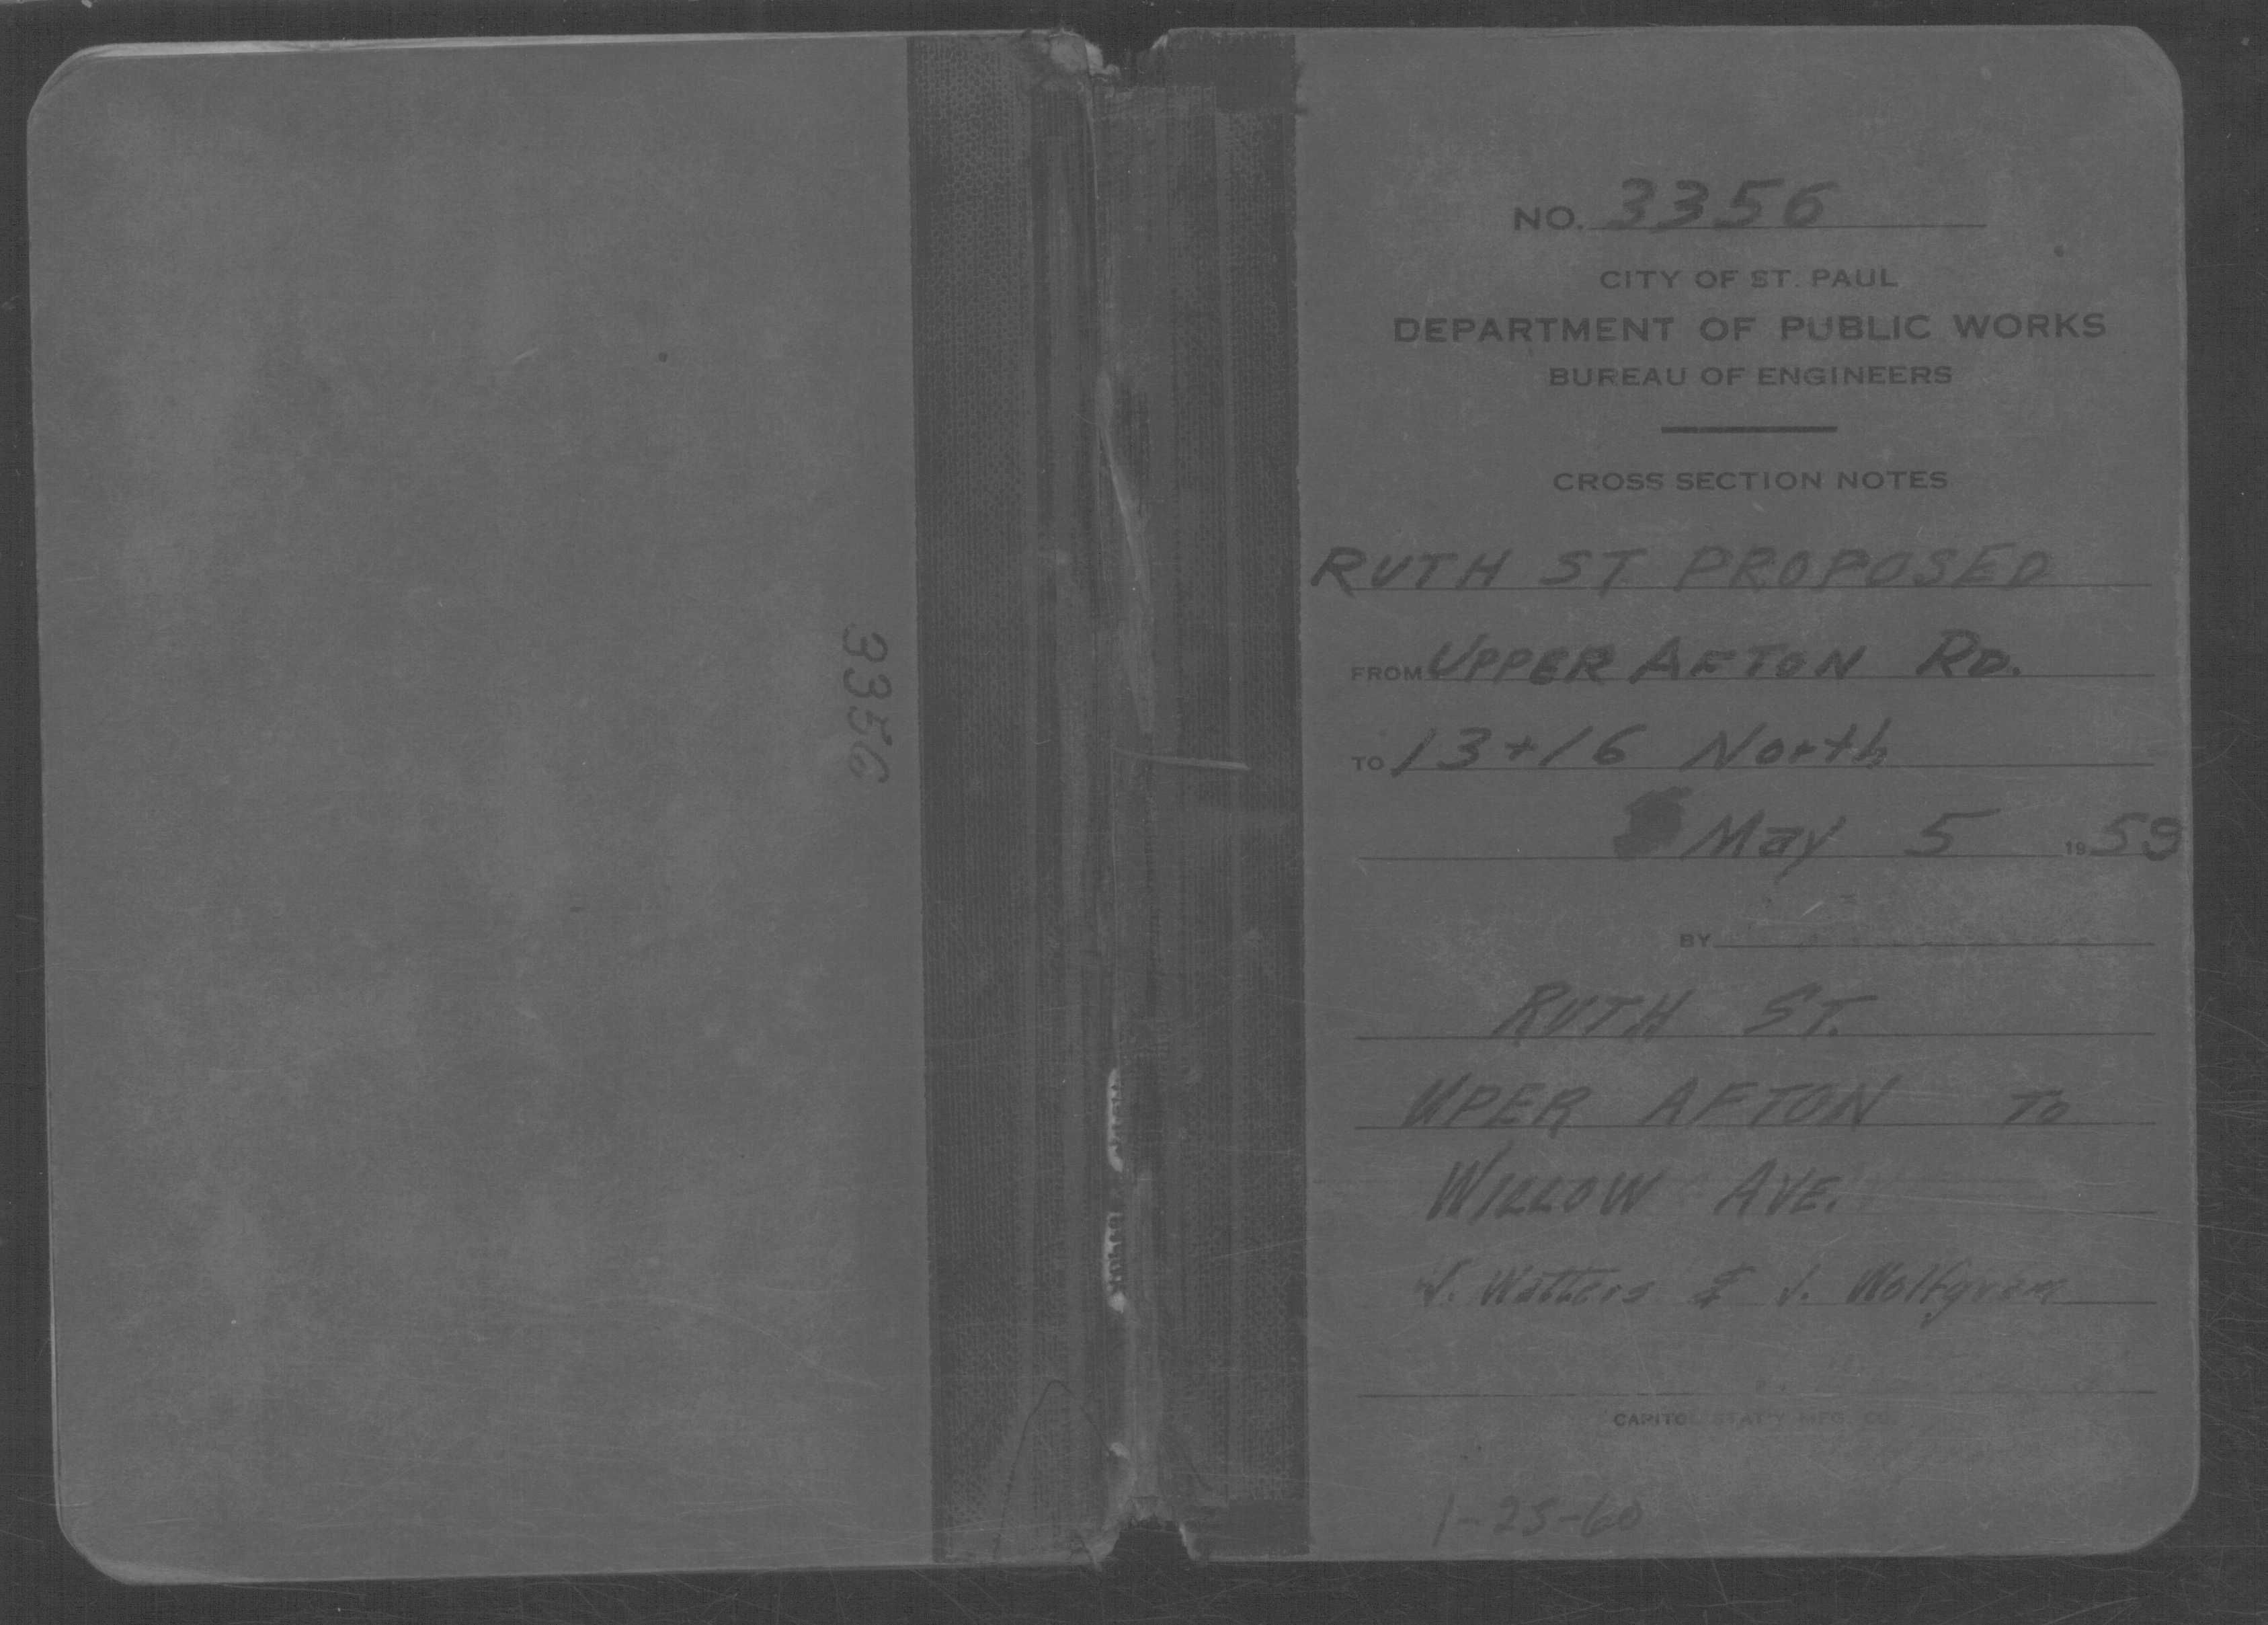 3356
NO. 3356
CITY OF ST. PAUL
DEPARTMENT OF PUBLIC WORKS
BUREAU OF ENGINEERS
CROSS SECTION NOTES
RUTH ST PROPOSED
FROM UPPER AFTON RD.
TO 13+16 North
May 5 1959
BY
RUTH ST.
UPER AFTON To
WILLOW AVE.
J. Watters & J. Wolfgram
CAPITOL STAT'Y MFG. CO.
1-25-60